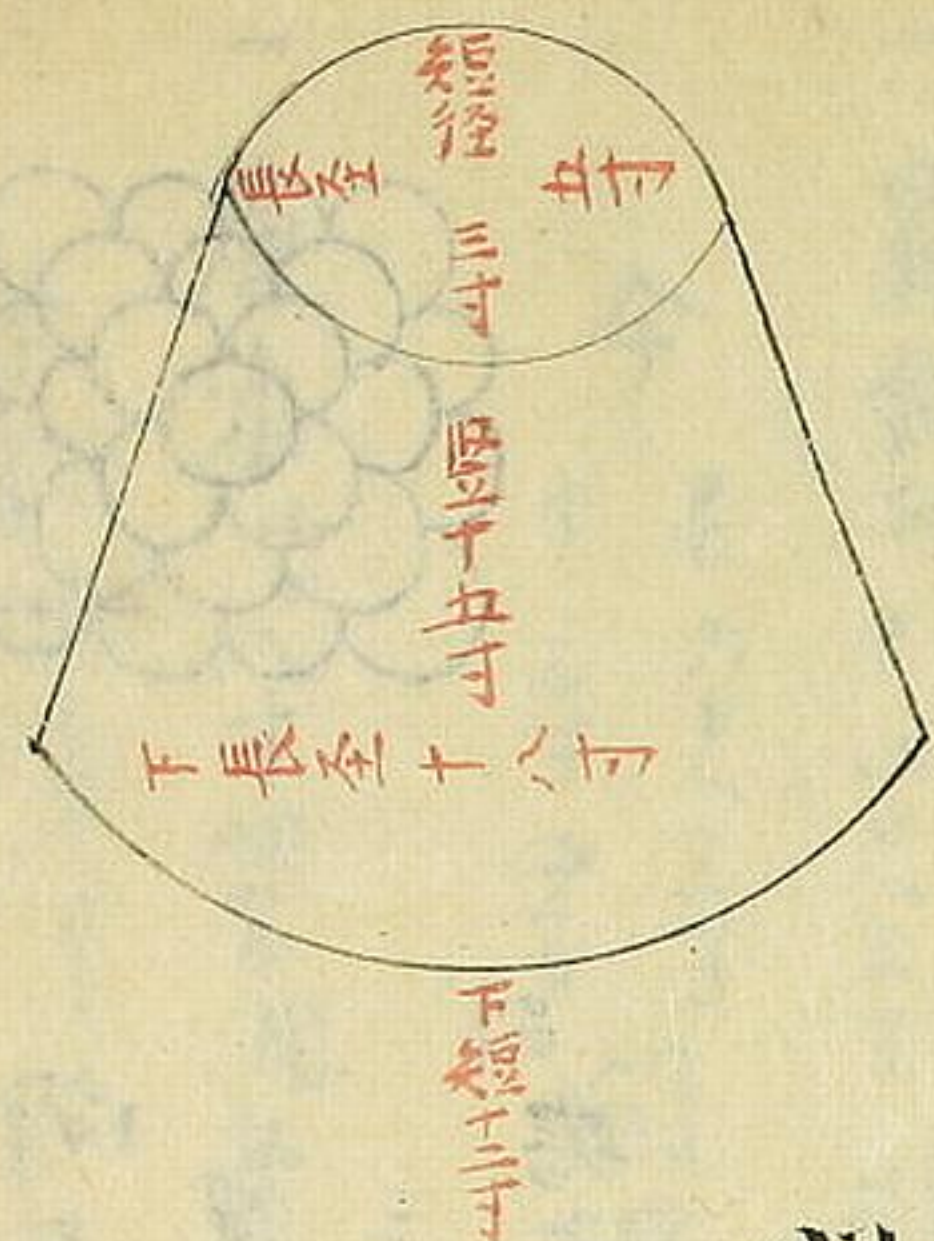 短径三寸
長至五寸
竪十五寸
下長至十八寸
下短十二寸